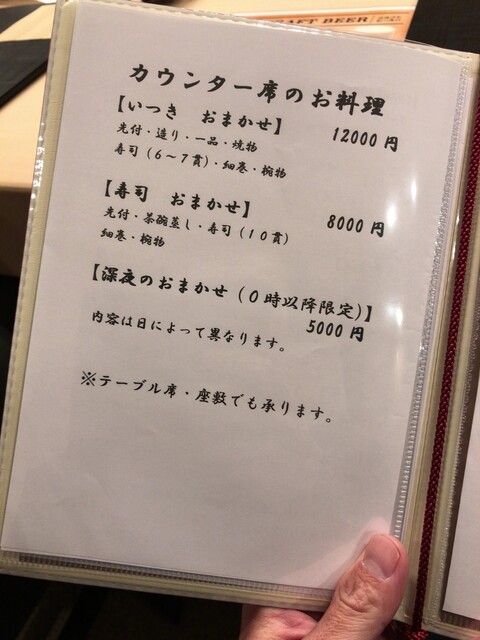 CRAFT BEER
カウンター席のお料理
【いつき　おまかせ】 12000 円
光付・造り・一品・焼物
寿司（6～7貫）・細巻・椀物
【寿司　おまかせ】 8000 円
光付・茶碗蒸し・寿司（10貫）
細巻・椀物
【深夜のおまかせ（0時以降限定）】
5000 円
内容は日によって異なります。
※テーブル席・座敷でも承ります。